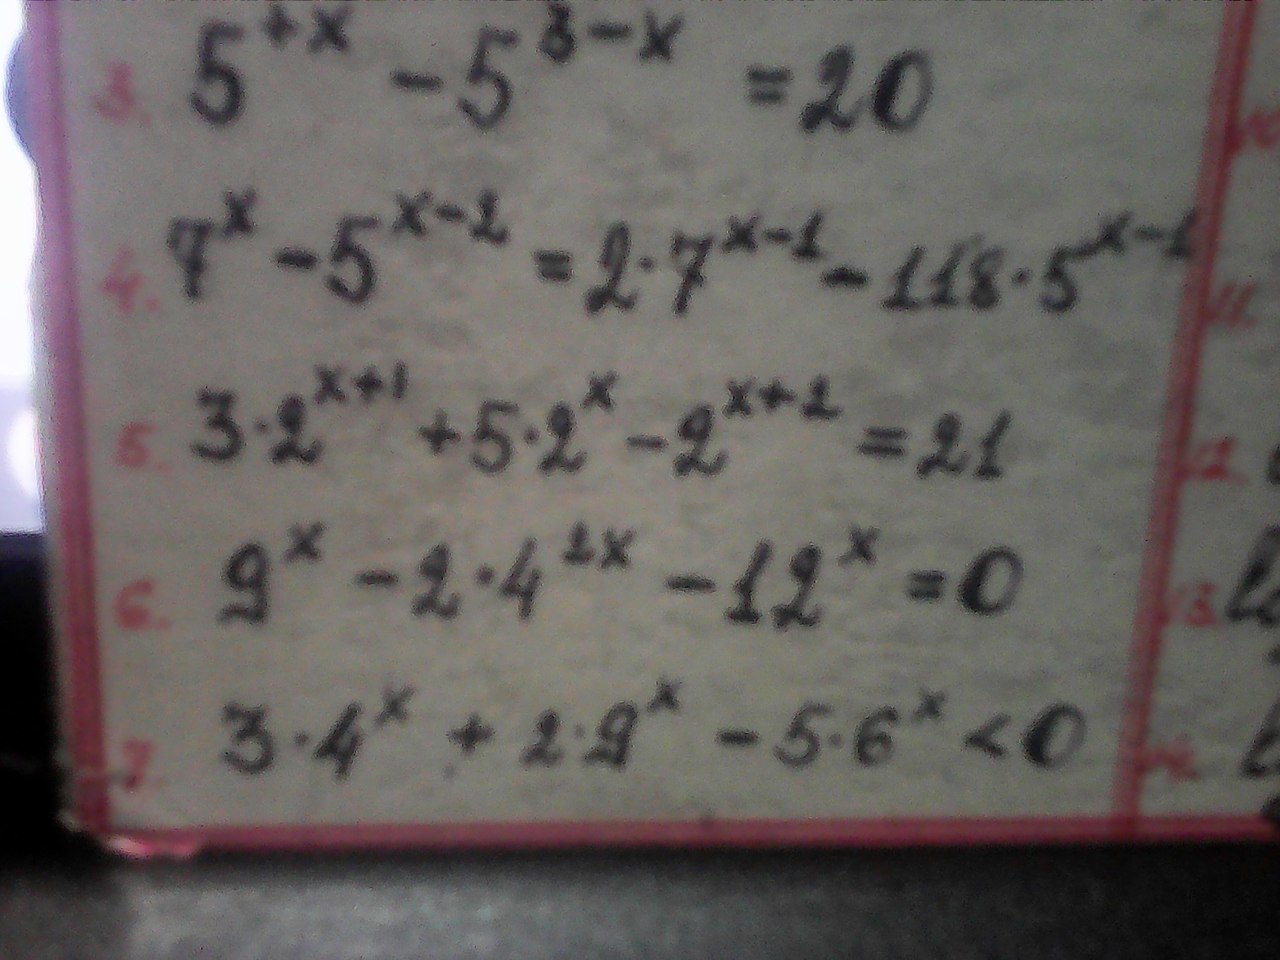 3. 5^{+x} - 5^{3-x} = 20
4. 7^x - 5^{x-2} = 2·7^{x-1} - 118·5^{x-1}
5. 3·2^{x+1} + 5·2^x - 2^{x+2} = 21
6. 9^x - 2·4^{2x} - 12^x = 0
7. 3·4^x + 2·9^x - 5·6^x < 0
10
11.
12.
13.
14.